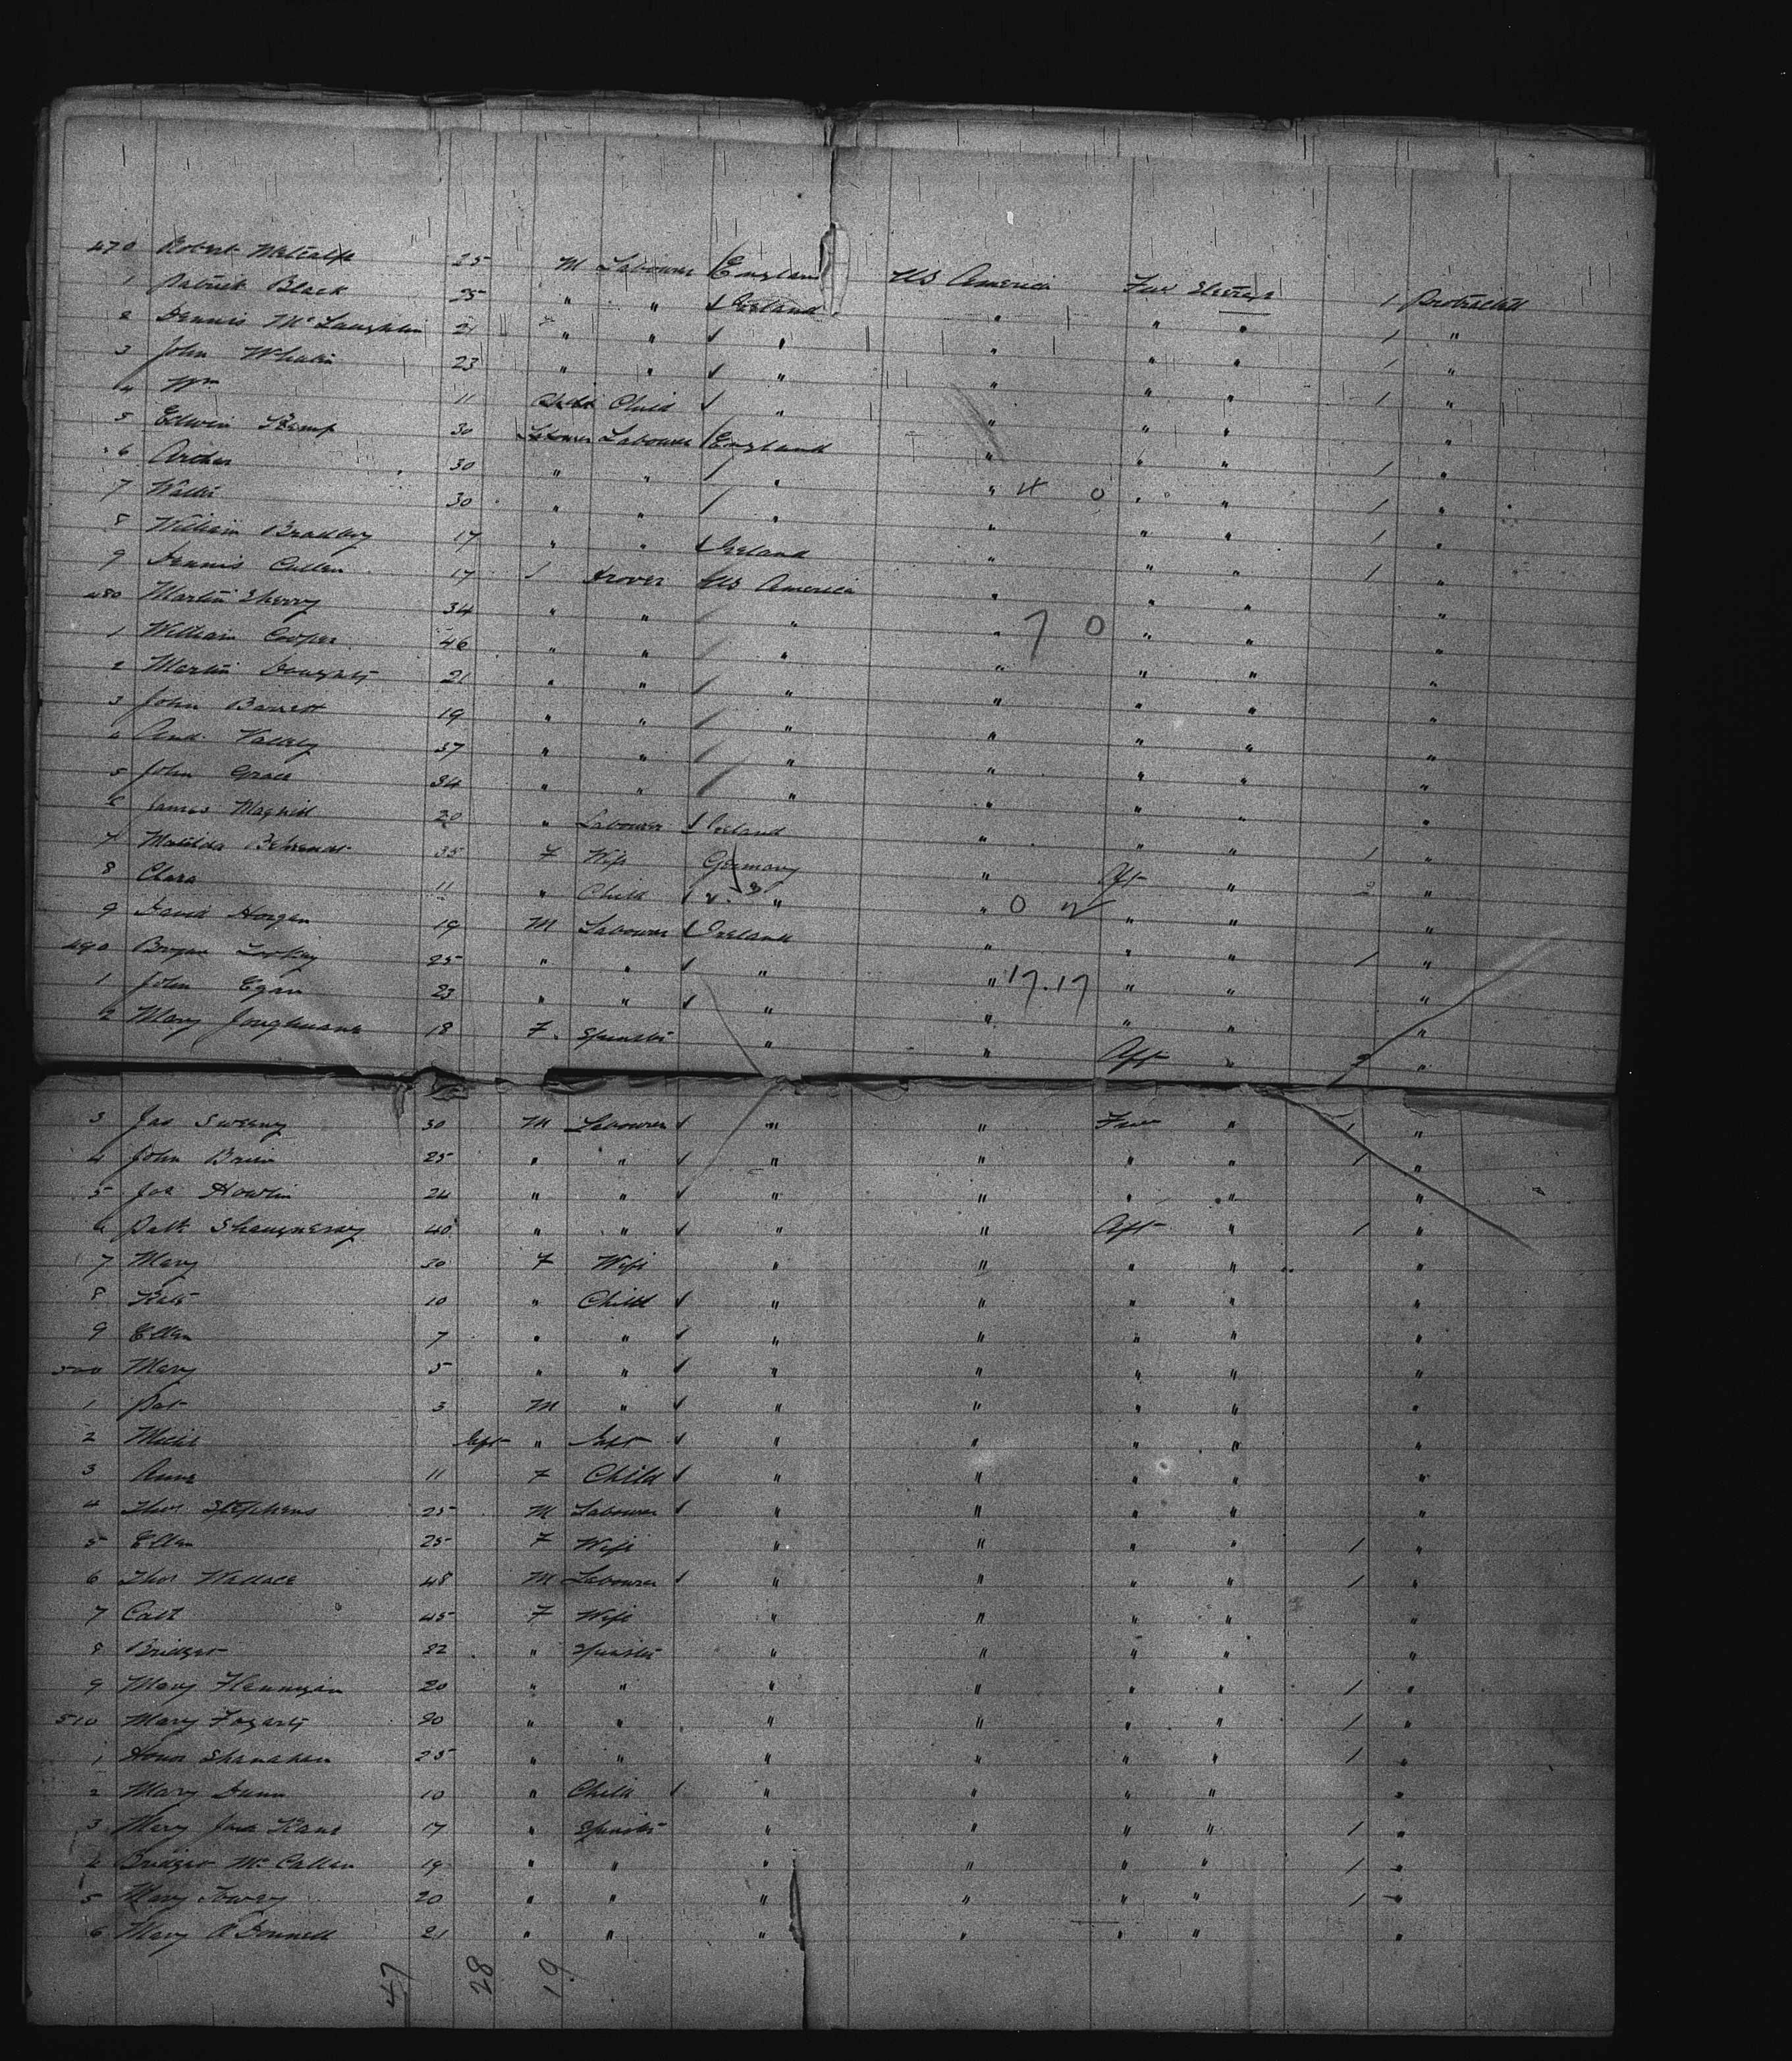 470 Robert Metcalfe 25 M Labourer England US America Fwd Steerage 1 Protracted
1 Patrick Black 25 " " Ireland " " " 1 "
2 Dennis McLaughlin 21 " " " " " " 1 "
3 John Whalen 23 " " " " " " 1 "
4 Wm 11 Child Child " " " " "
5 Edwin Kemp 30 Labourer Labourer England " " " 1 "
6 Archer 30 " " " " " " 1 "
7 Walter 30 " " " " " " 1 "
8 William Bradley 17 " " Ireland " " " 1 "
9 Dennis Cullen 17 Drover US America " " " "
480 Martin Sherry 34 " " " " " " "
1 William Cooper 46 " " " " " " "
2 Martin 21 " " " " " " "
3 John Barrett 19 " " " " " " "
4 37 " " " " " " "
5 John Grace 34 " " " " " " "
6 James 20 " Labourer Ireland " " " 1 "
7 Matilda Behrendt 35 F Wife Germany " Aft " 2 "
8 Clara 11 " Child " " " " "
9 David Horgan 19 M Labourer Ireland " " " 1 "
490 25 " " " " " " "
1 John Egan 23 " " " " " " "
2 Mary 18 F Spinster " " Aft " "
3 Jas Sweeny 30 M Labourer " " Fwd " 1 "
4 John 25 " " " " " " 1 "
5 Howlin 24 " " " " " " "
6 Patk Shaugnessy 40 " " " " Aft " 1 "
7 Mary 30 F Wife " " " " "
8 Kate 10 " Child " " " " "
9 Ellen 7 " " " " " " "
500 Mary 5 " " " " " " "
1 Pat 3 M " " " " " "
2 Michl Inft " Inft " " " " "
3 Anne 11 F Child " " " " "
4 Thos Stephens 25 M Labourer " " " " "
5 Ellen 25 F Wife " " " " 1 "
6 Thos Wallace 48 M Labourer " " " " 1 "
7 Cath 45 F Wife " " " " "
8 Bridget 22 " Spinster " " " " "
9 Mary Flannigan 20 " " " " " " 1 "
510 Mary Fogarty 20 " " " " " " 1 "
1 Honor Shanahan 25 " " " " " " 1 "
2 Mary Dunn 10 " Child " " " " "
3 Mary Jane Kane 17 " Spinster " " " " 1 "
4 Bridget McCallen 19 " " " " " " 1 "
5 Mary 20 " " " " " " 1 "
6 Mary O'Donnell 21 " " " " " " "
47 28 19